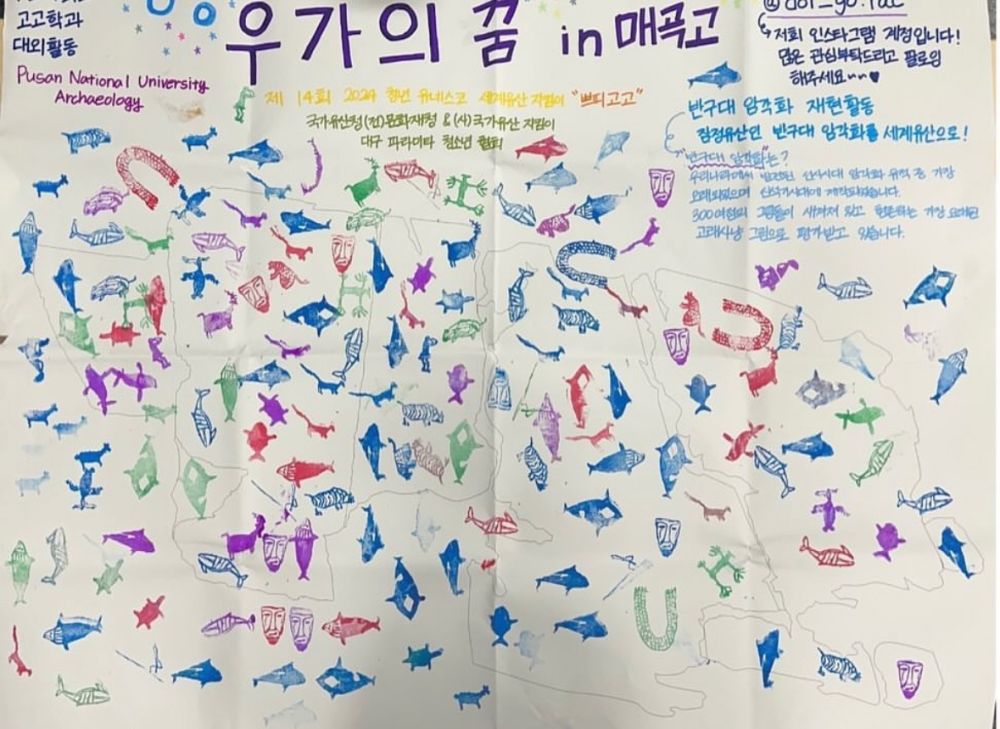 고고학과
대외활동
Pusan National University
Archaeology
우가의 꿈 in 매곡고
제 14회 2024 청년 유네스코 세계유산 지킴이 "쁘띠고고"
국가유산청(전)문화재청 & (사)국가유산 지킴이
대구 파라미타 청소년 협회
저희 인스타그램 계정입니다!
많은 관심부탁드리고 팔로잉
해주세요~~♥
반구대 암각화 재현활동
잠정유산인 반구대 암각화를 세계유산으로!
"반구대 암각화"는?
우리나라에서 발견된 선사시대 암각화 유적 중 가장
오래되었으며 신석기시대에 제작되었습니다.
300여점의 그림들이 새겨져 있고 현존하는 가장 오래된
고래사냥 그림으로 평가받고 있습니다.